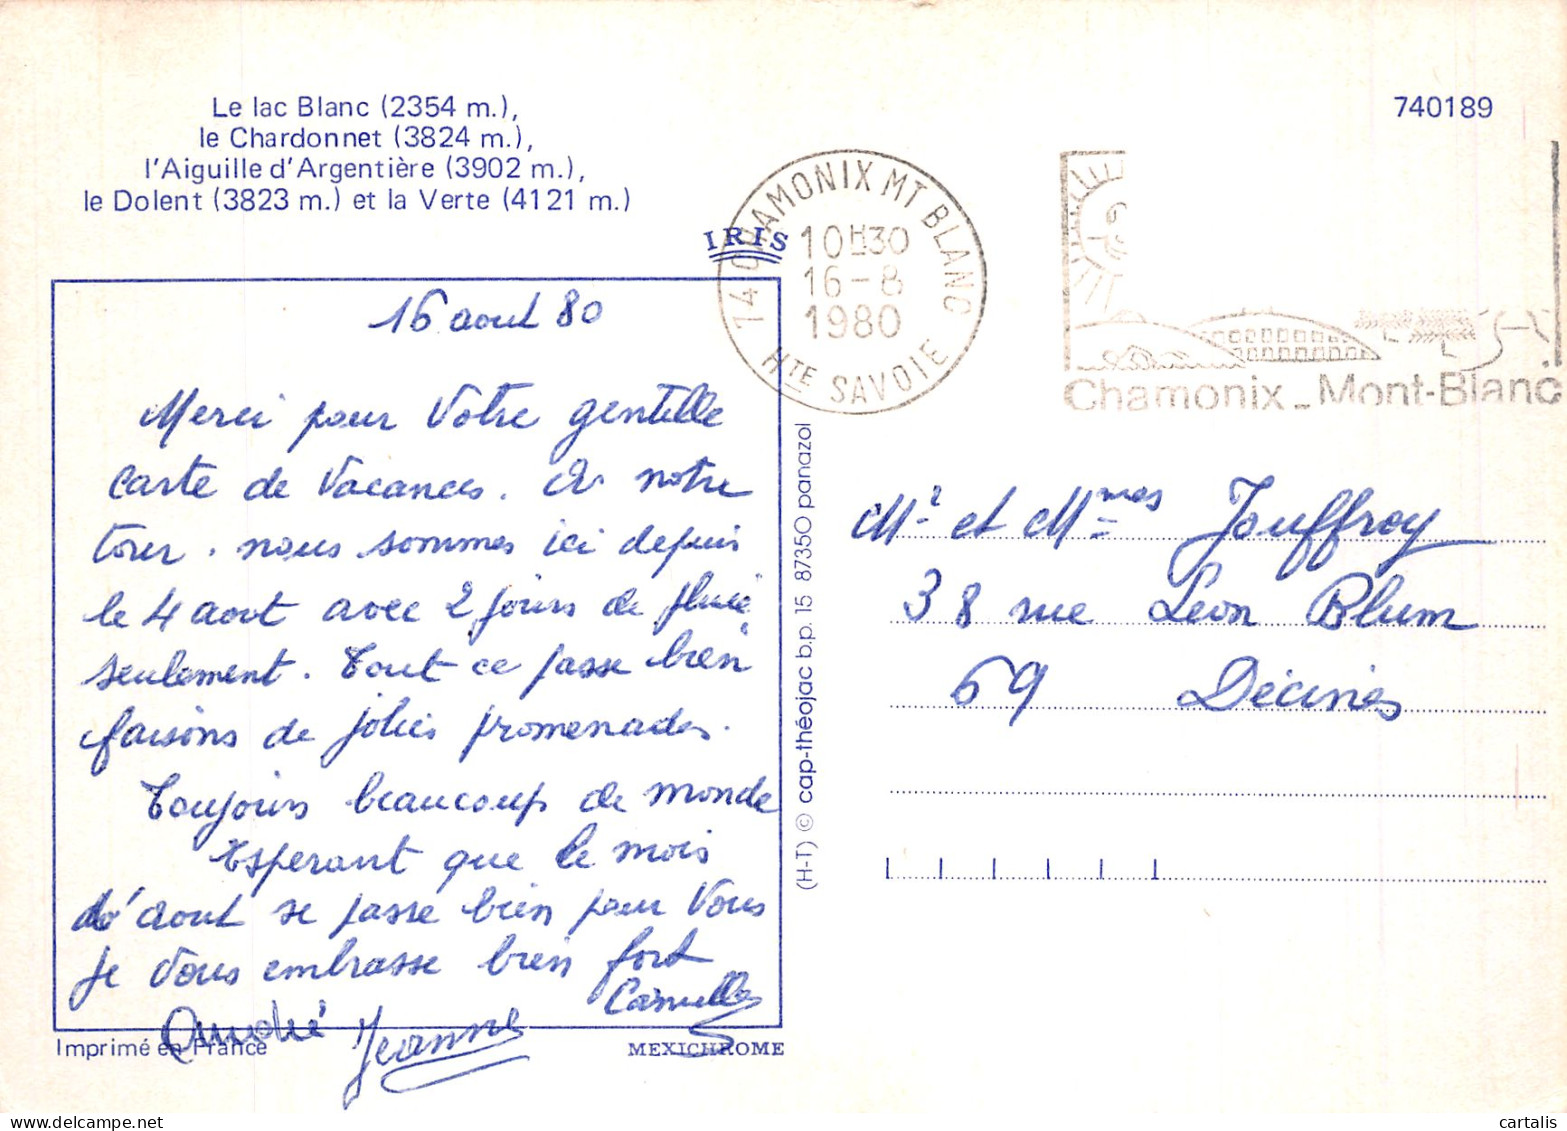 Le lac Blanc (2354 m.),
le Chardonnet (3824 m.),
l'Aiguille d'Argentière (3902 m.),
le Dolent (3823 m.) et la Verte (4121 m.)
740189
IRIS
74 CHAMONIX MT BLANC
10H30
16-8
1980
HTE SAVOIE
Chamonix_Mont-Blanc
16 aout 80
Merci pour Votre gentille
carte de Vacances. A notre
tour. nous sommes ici depuis
le 4 aout avec 2 jours de pluie
seulement. Tout ce passe bien
faisons de jolies promenades.
Toujours beaucoup de monde
Esperant que le mois
d'aout se passe bien pour Vous
je Vous embrasse bien fort
Camille
André Jeanne
Mr et Mmes Jouffroy
38 rue Léon Blum
69 Décines
(H-T) © cap-théojac b.p. 15 87350 panazol
Imprimé en France
MEXICHROME
cartalis